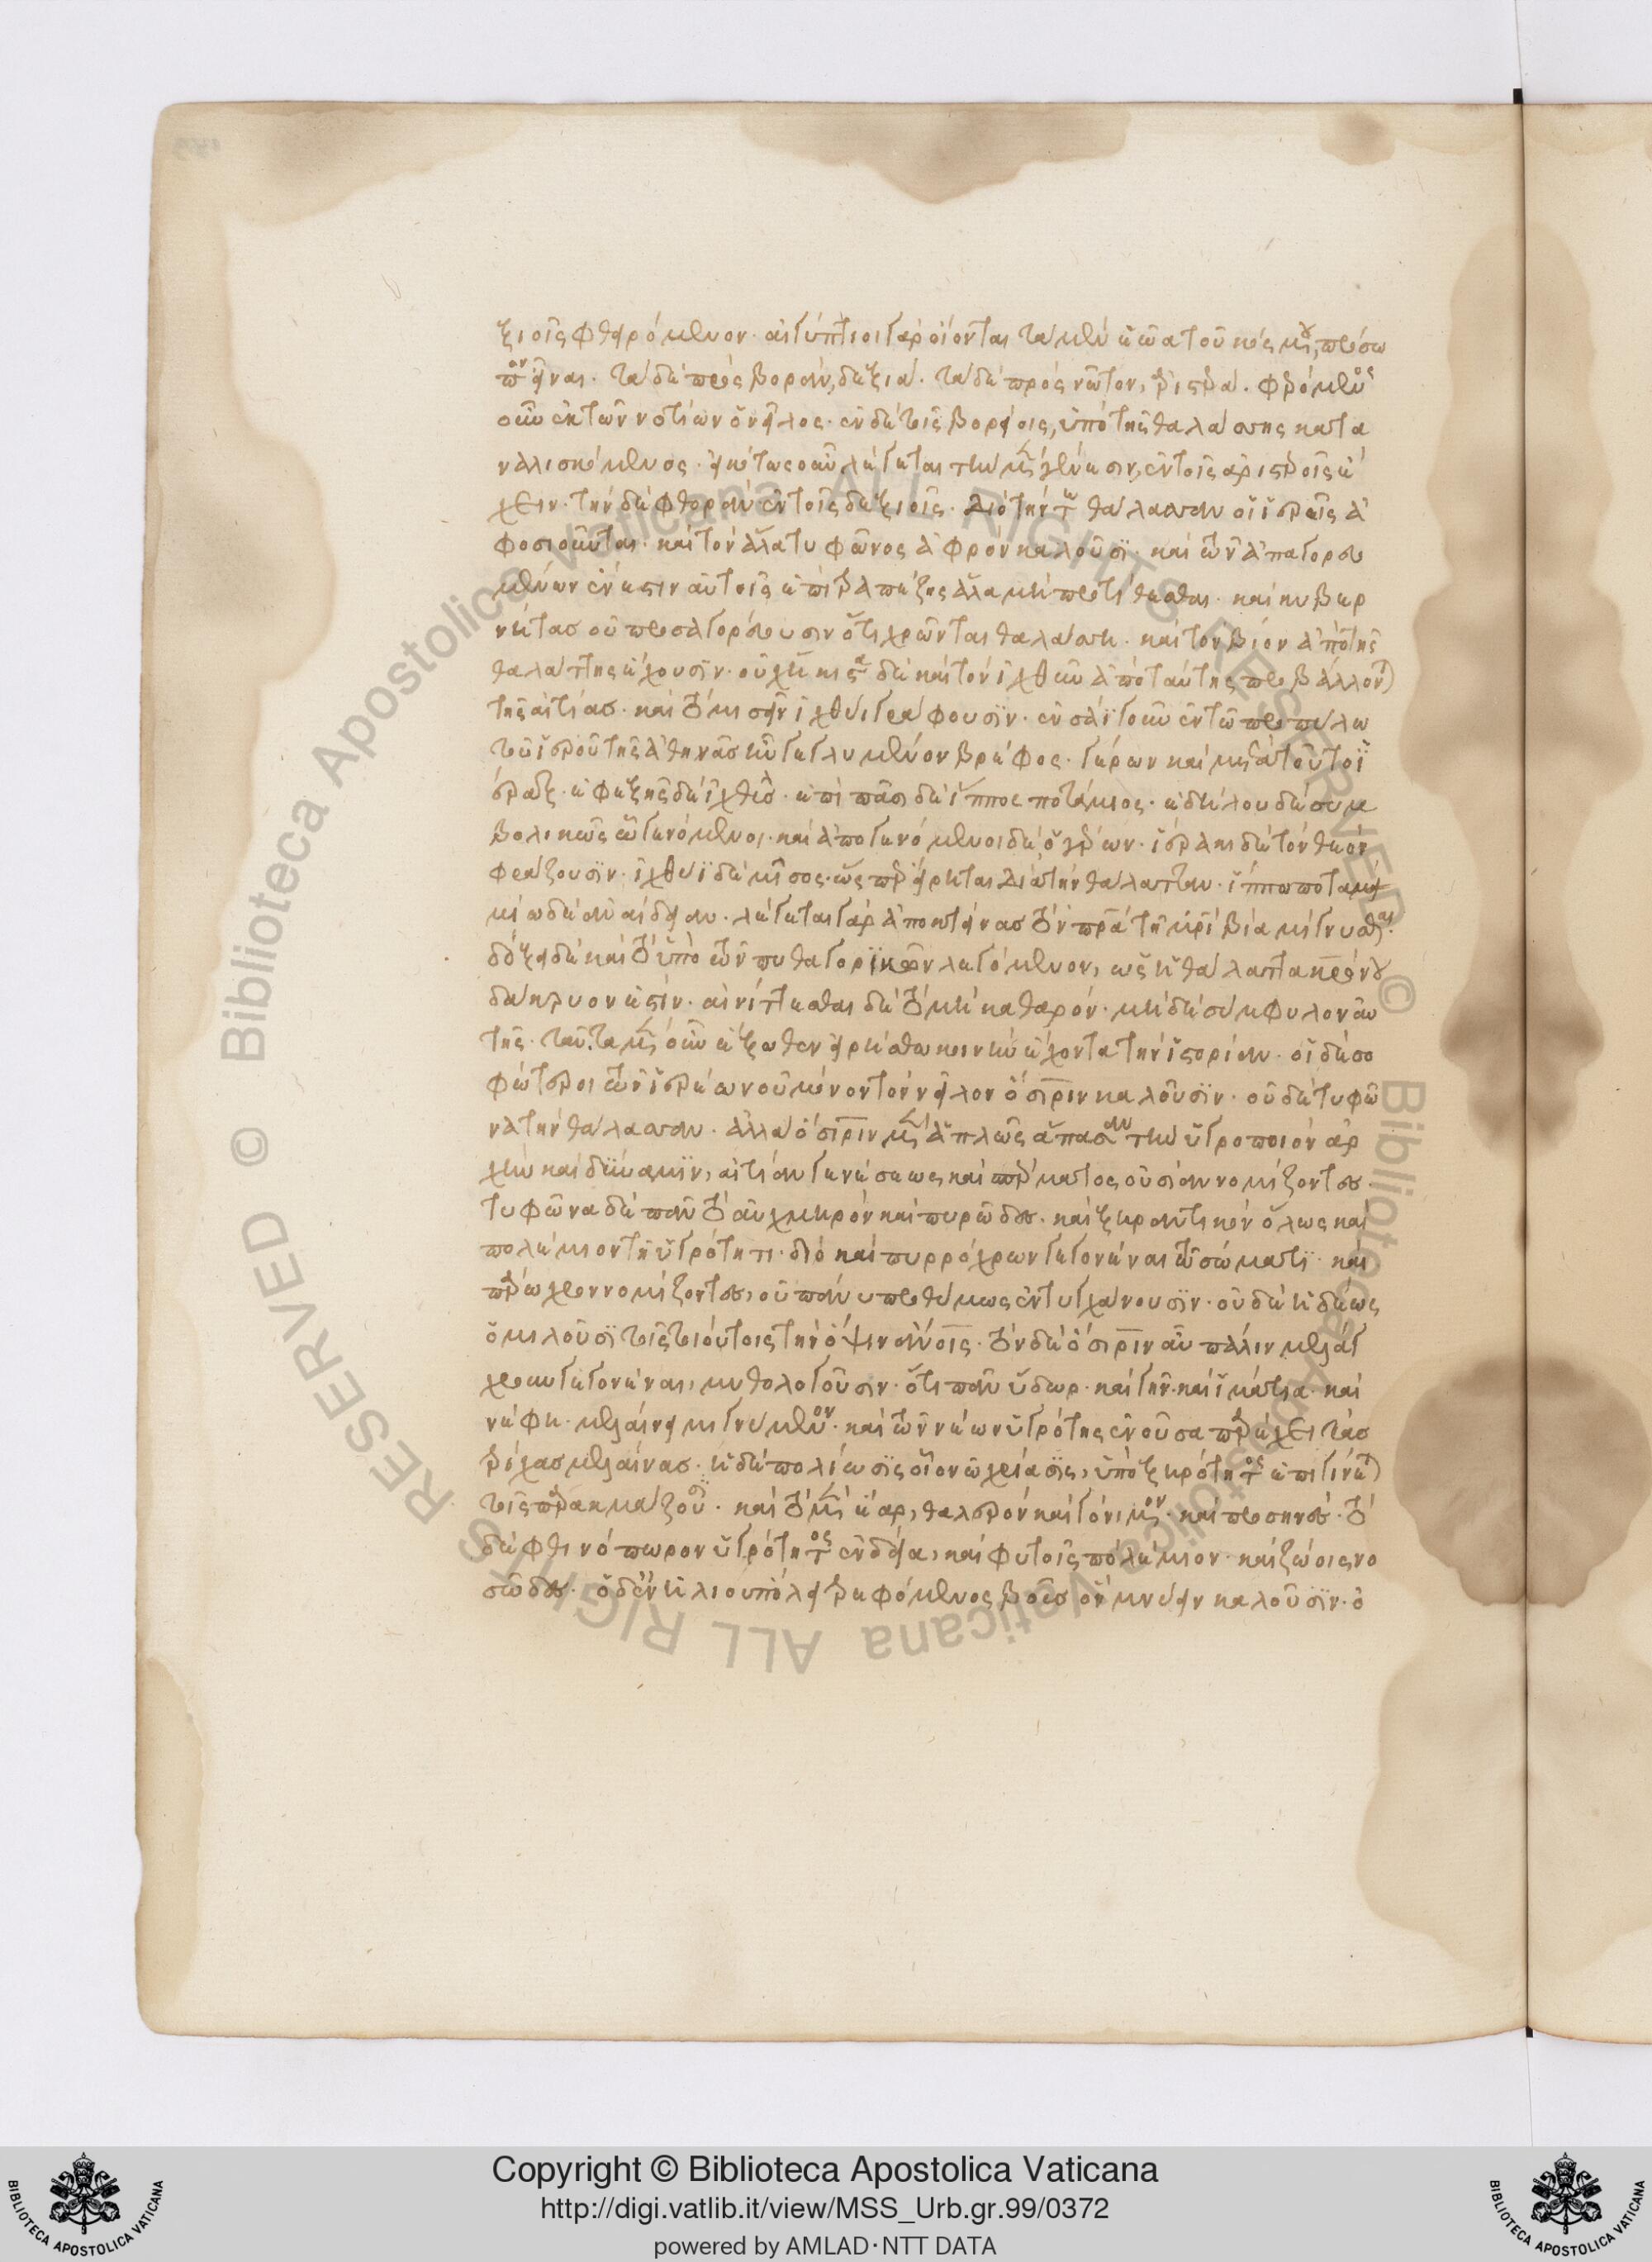 ξιοῖς φθειρόμενον. αἰγύπτιοι γὰρ οἴονται τὰ μὲν ἑῶα τοῦ κόσμου, πρόσω
πον εἶναι. τὰ δὲ πρὸς βορᾶν, δεξιά. τὰ δὲ πρὸς νῶτον, ἀριστερά. φερόμενος
οὖν ἐκ τῶν νοτίων ὁ νεῖλος. ἐν δὲ τοῖς βορείοις, ὑπὸ τῆς θαλάσσης κατα
ναλισκόμενος. εἰκότως οὖν λέγεται τὴν μὲν γένεσιν, ἐν τοῖς ἀριστεροῖς ἔ
χειν. τὴν δὲ φθορὰν ἐν τοῖς δεξιοῖς. διὸ τήν τε θάλασσαν οἱ ἱερεῖς ἀ
φοσιοῦνται. καὶ τὸν ἅλα τυφῶνος ἀφρὸν καλοῦσι. καὶ τῶν ἀπαγορευ
μένων ἕν ἐστιν αὐτοῖς ἐπὶ τραπέζης ἅλα μὴ προτίθεσθαι. καὶ κυβερ
νήτας οὐ προσαγορεύουσιν ὅτι χρῶνται θαλάσσῃ. καὶ τὸν βίον ἀπὸ τῆς
θαλάττης ἔχουσιν. οὐχ ἥκιστα δὲ καὶ τὸν ἰχθὺν ἀπὸ ταύτης προβάλλονται
τῆς αἰτίας. καὶ τὸ μισεῖν ἰχθύι γράφουσιν. ἐν σάϊ γοῦν ἐν τῷ προπύλω
τοῦ ἱεροῦ τῆς ἀθηνᾶς ἦν γεγλυμμένον βρέφος. γέρων καὶ μετὰ τοῦτο ἱ
έραξ. ἐφεξῆς δὲ ἰχθύς. ἐπὶ πᾶσι δὲ ἵππος ποτάμιος. ἐδήλου δὲ συμ
βολικῶς ὦ γινόμενοι. καὶ ἀπογινόμενοι δὲ, ὁ γέρων. ἱέρακι δὲ τὸν θεὸν
φράζουσιν. ἰχθύϊ δὲ μῖσος. ὥσπερ εἴρηται διὰ τὴν θάλατταν. ἵππω ποταμεί
μίω δὲ ἀναίδειαν. λέγεται γὰρ ἀποκτείνας τὸν πατέρα τῇ μητρὶ βίᾳ μίγνυσθαι.
δόξει δὲ καὶ τὸ ὑπὸ τῶν πυθαγορικῶν λεγόμενον, ὡς ἡ θάλαττα κρόνου
δάκρυον ἐστίν. αἰνίττεσθαι δὲ τὸ μὴ καθαρόν. μὴ δὲ σύμφυλον αὐ
τῆς. ταῦτα μὲν οὖν ἔξωθεν εἰρήσθω κοινὴν ἔχοντα τὴν ἱστορίαν. οἱ δὲ σο
φώτεροι τῶν ἱερέων οὐ μόνον τὸν νεῖλον ὄσιριν καλοῦσιν. οὐδὲ τυφῶ
να τὴν θάλασσαν. ἀλλὰ ὄσιριν μὲν ἁπλῶς ἅπασαν τὴν ὑγροποιὸν ἀρ
χὴν καὶ δύναμιν, αἰτίαν γενέσεως καὶ σπέρματος οὐσίαν νομίζοντες.
τυφῶνα δὲ πᾶν τὸ αὐχμηρὸν καὶ πυρῶδες. καὶ ξηραντικὸν ὅλως καὶ
πολέμιον τῇ ὑγρότητι. διὸ καὶ πυρρόχρων γεγονέναι τῷ σώματι. καὶ
πάρωχρον νομίζοντες, οὐ πάνυ προθύμως ἐντυγχάνουσιν. οὐδὲ ἡδέως
ὁμιλοῦσι τοῖς τοιούτοις τὴν ὄψιν ἀνθρώποις. τὸν δὲ ὄσιριν αὖ πάλιν μελάγ
χρουν γεγονέναι, μυθολογοῦσιν. ὅτι πᾶν ὕδωρ. καὶ γῆν. καὶ ἱμάτια. καὶ
νέφη. μελαίνει μιγνύμενον. καὶ τῶν νέων ὑγρότης ἐνοῦσα παρέχει τὰς
τρίχας μελαίνας. ἡ δὲ πολίωσις οἷον ὠχρίασις, ὑπὸ ξηρότητος ἐπιγίνεται
τοῖς παρακμάζουσι. καὶ τὸ μὲν ἔαρ, θαλερὸν καὶ γόνιμον. καὶ προσηνές. τὸ
δὲ φθινόπωρον ὑγρότητος ἐνδείᾳ, καὶ φυτοῖς πολέμιον. καὶ ζώοις νο
σῶδες. ὁ δ᾽ ἐν ἡλιουπόλει τρεφόμενος βοῦς ὃν μνύειν καλοῦσιν. ὀ
Copyright © Biblioteca Apostolica Vaticana
http://digi.vatlib.it/view/MSS_Urb.gr.99/0372
powered by AMLAD·NTT DATA